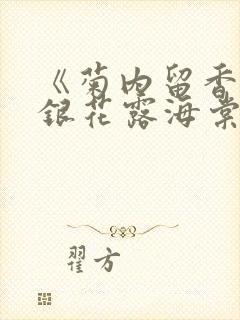 《菊内留香
银花露海棠
翟方